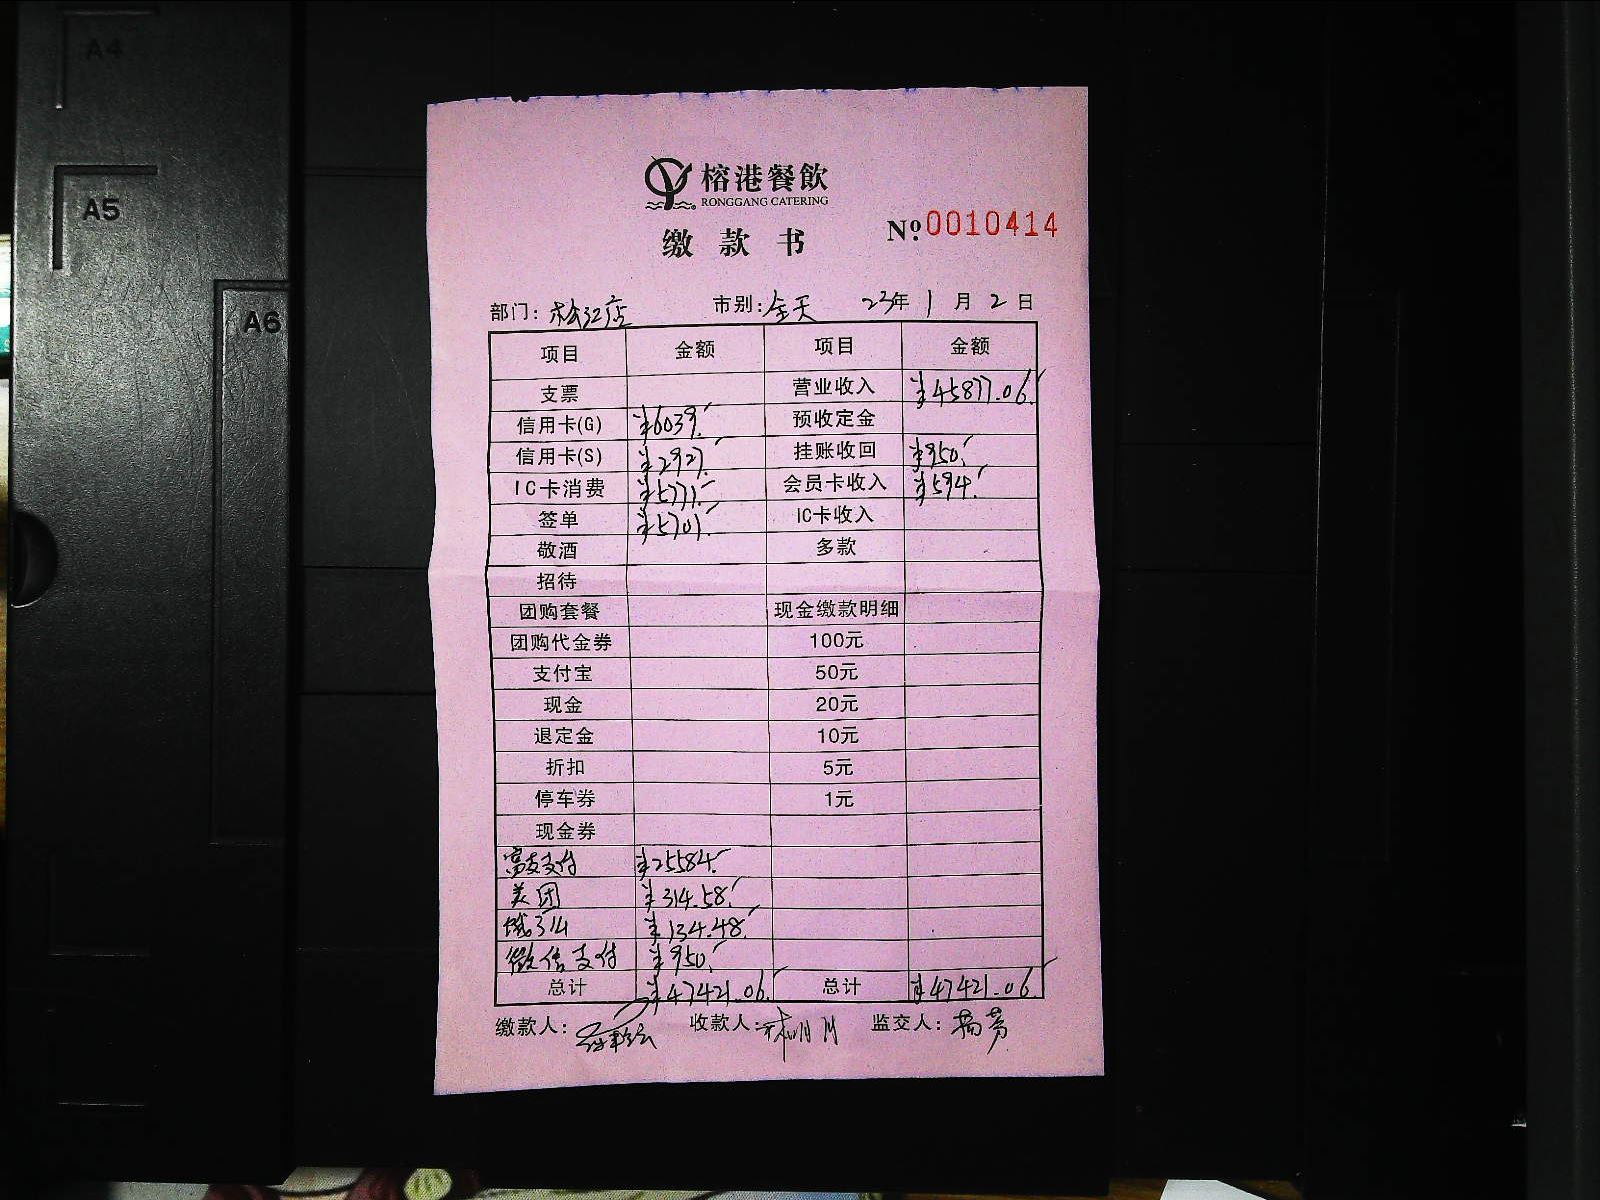 A4
A5
A6
榕港餐飲
RONGGANG CATERING
缴款书
№ 0010414
部门: 松江店 市别: 全天 23年 1月 2日
项目 金额 项目 金额
支票 营业收入 ¥45877.06
信用卡(G) ¥6039. 预收定金
信用卡(S) ¥2927. 挂账收回 ¥950.
IC卡消费 ¥5771. 会员卡收入 ¥594.
签单 ¥5701. IC卡收入
敬酒 多款
招待
团购套餐 现金缴款明细
团购代金券 100元
支付宝 50元
现金 20元
退定金 10元
折扣 5元
停车券 1元
现金券
富友支付 ¥25584.
美团 ¥314.58.
饿了么 ¥134.48.
微信支付 ¥950.
总计 ¥47421.06. 总计 ¥47421.06.
缴款人: 收款人: 监交人: